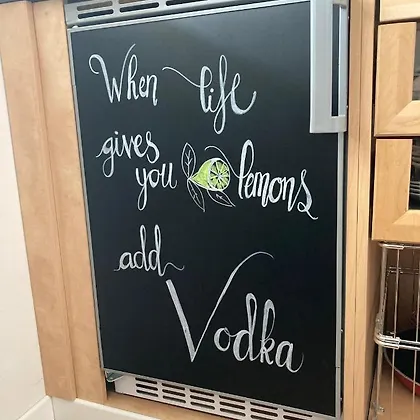 When life
gives
you lemons
add
Vodka